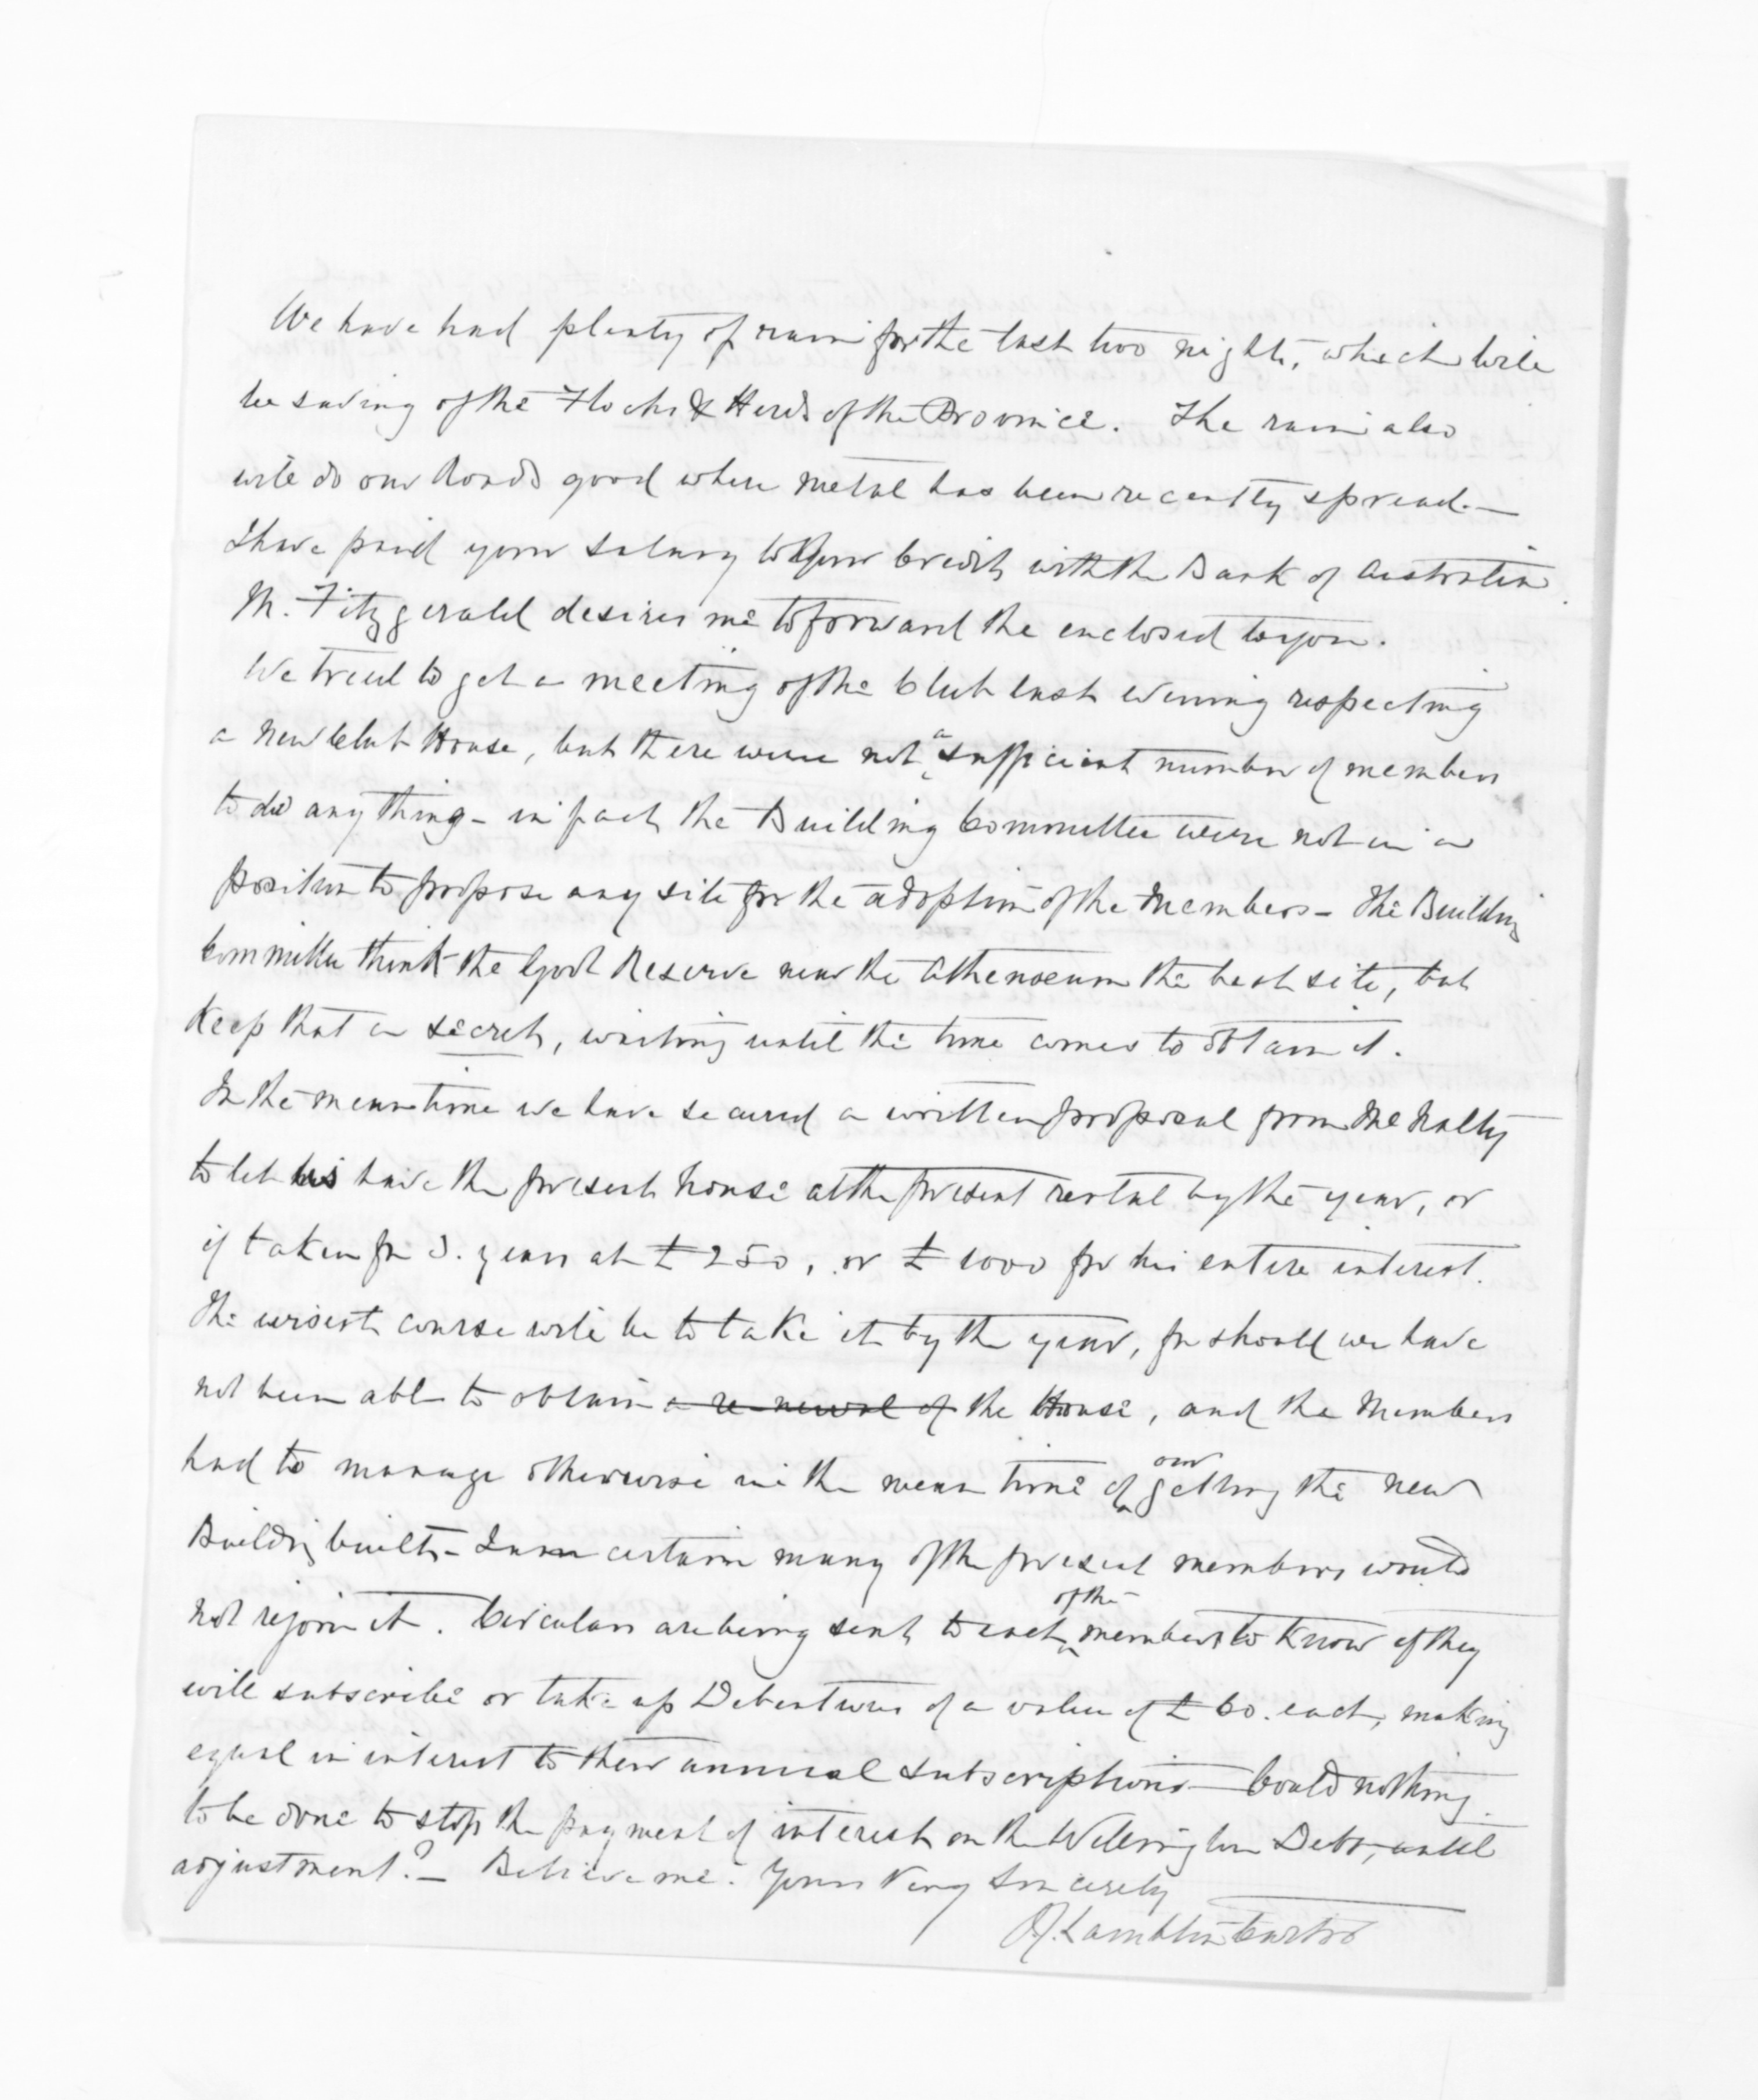 We have had plenty of rain for the last two nights, which will
be saving of the Flocks & Herds of the Province. The rain also
will do our Roads good where metal has been recently spread. —
I have paid your salary to your credit with the Bank of Australia
M. Fitzgerald desires me to forward the enclosed to you.
We tried to get a meeting of the Club last evening respecting
a new Club House, but there were not a sufficient number of members
to do any thing - in fact the Building Committee were not in a
position to propose any site for the adoption of the Members - The Building
Committee think the Govt Reserve near the Athenaeum the best site, but
Keep that a secret, waiting until the time comes to obtain it.
In the meantime we have secured a written proposal from
to let us have the present house at the present rental by the year, or
if taken for 3. years at £250, or £1000 for his entire interest.
The wisest course will be to take it by the year, for should we have
not been able to obtain a renewal of the House, and the Members
had to manage otherwise in the mean time of our getting the new
Building built - I am certain many of the present members would
not rejoin it. Circulars are being sent to each of the members to know if they
will subscribe or take up Debentures of a value of £60. each, making
equal in interest to their annual subscriptions — Could nothing
to be done to stop the payment of interest on the Wellington Debt, until
adjustment? — Believe me. Yours Very Sincerely